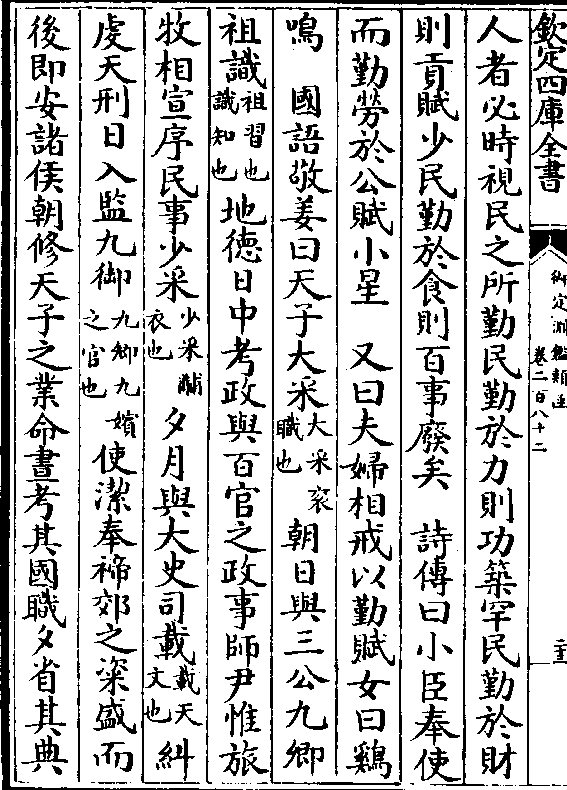 欽定四庫全書
御定淵鑑類函
卷二百八十二
人者必時視民之所勤民勤於力則功築罕民勤於財
則貢賦少民勤於食則百事廢矣　詩傳曰小臣奉使
而勤勞於公賦小星　又曰夫婦相戒以勤賦女曰鷄
鳴　國語敬姜曰天子大采大采衮職也朝日與三公九卿
祖識祖習也識知也地德日中考政與百官之政事師尹惟旅
牧相宣序民事少采少采黼衣也夕月與大史司載載天文也糾
虔天刑日入監九御九御九嬪之官也使潔奉禘郊之粢盛而
後即安諸侯朝修天子之業命晝考其國職夕省其典